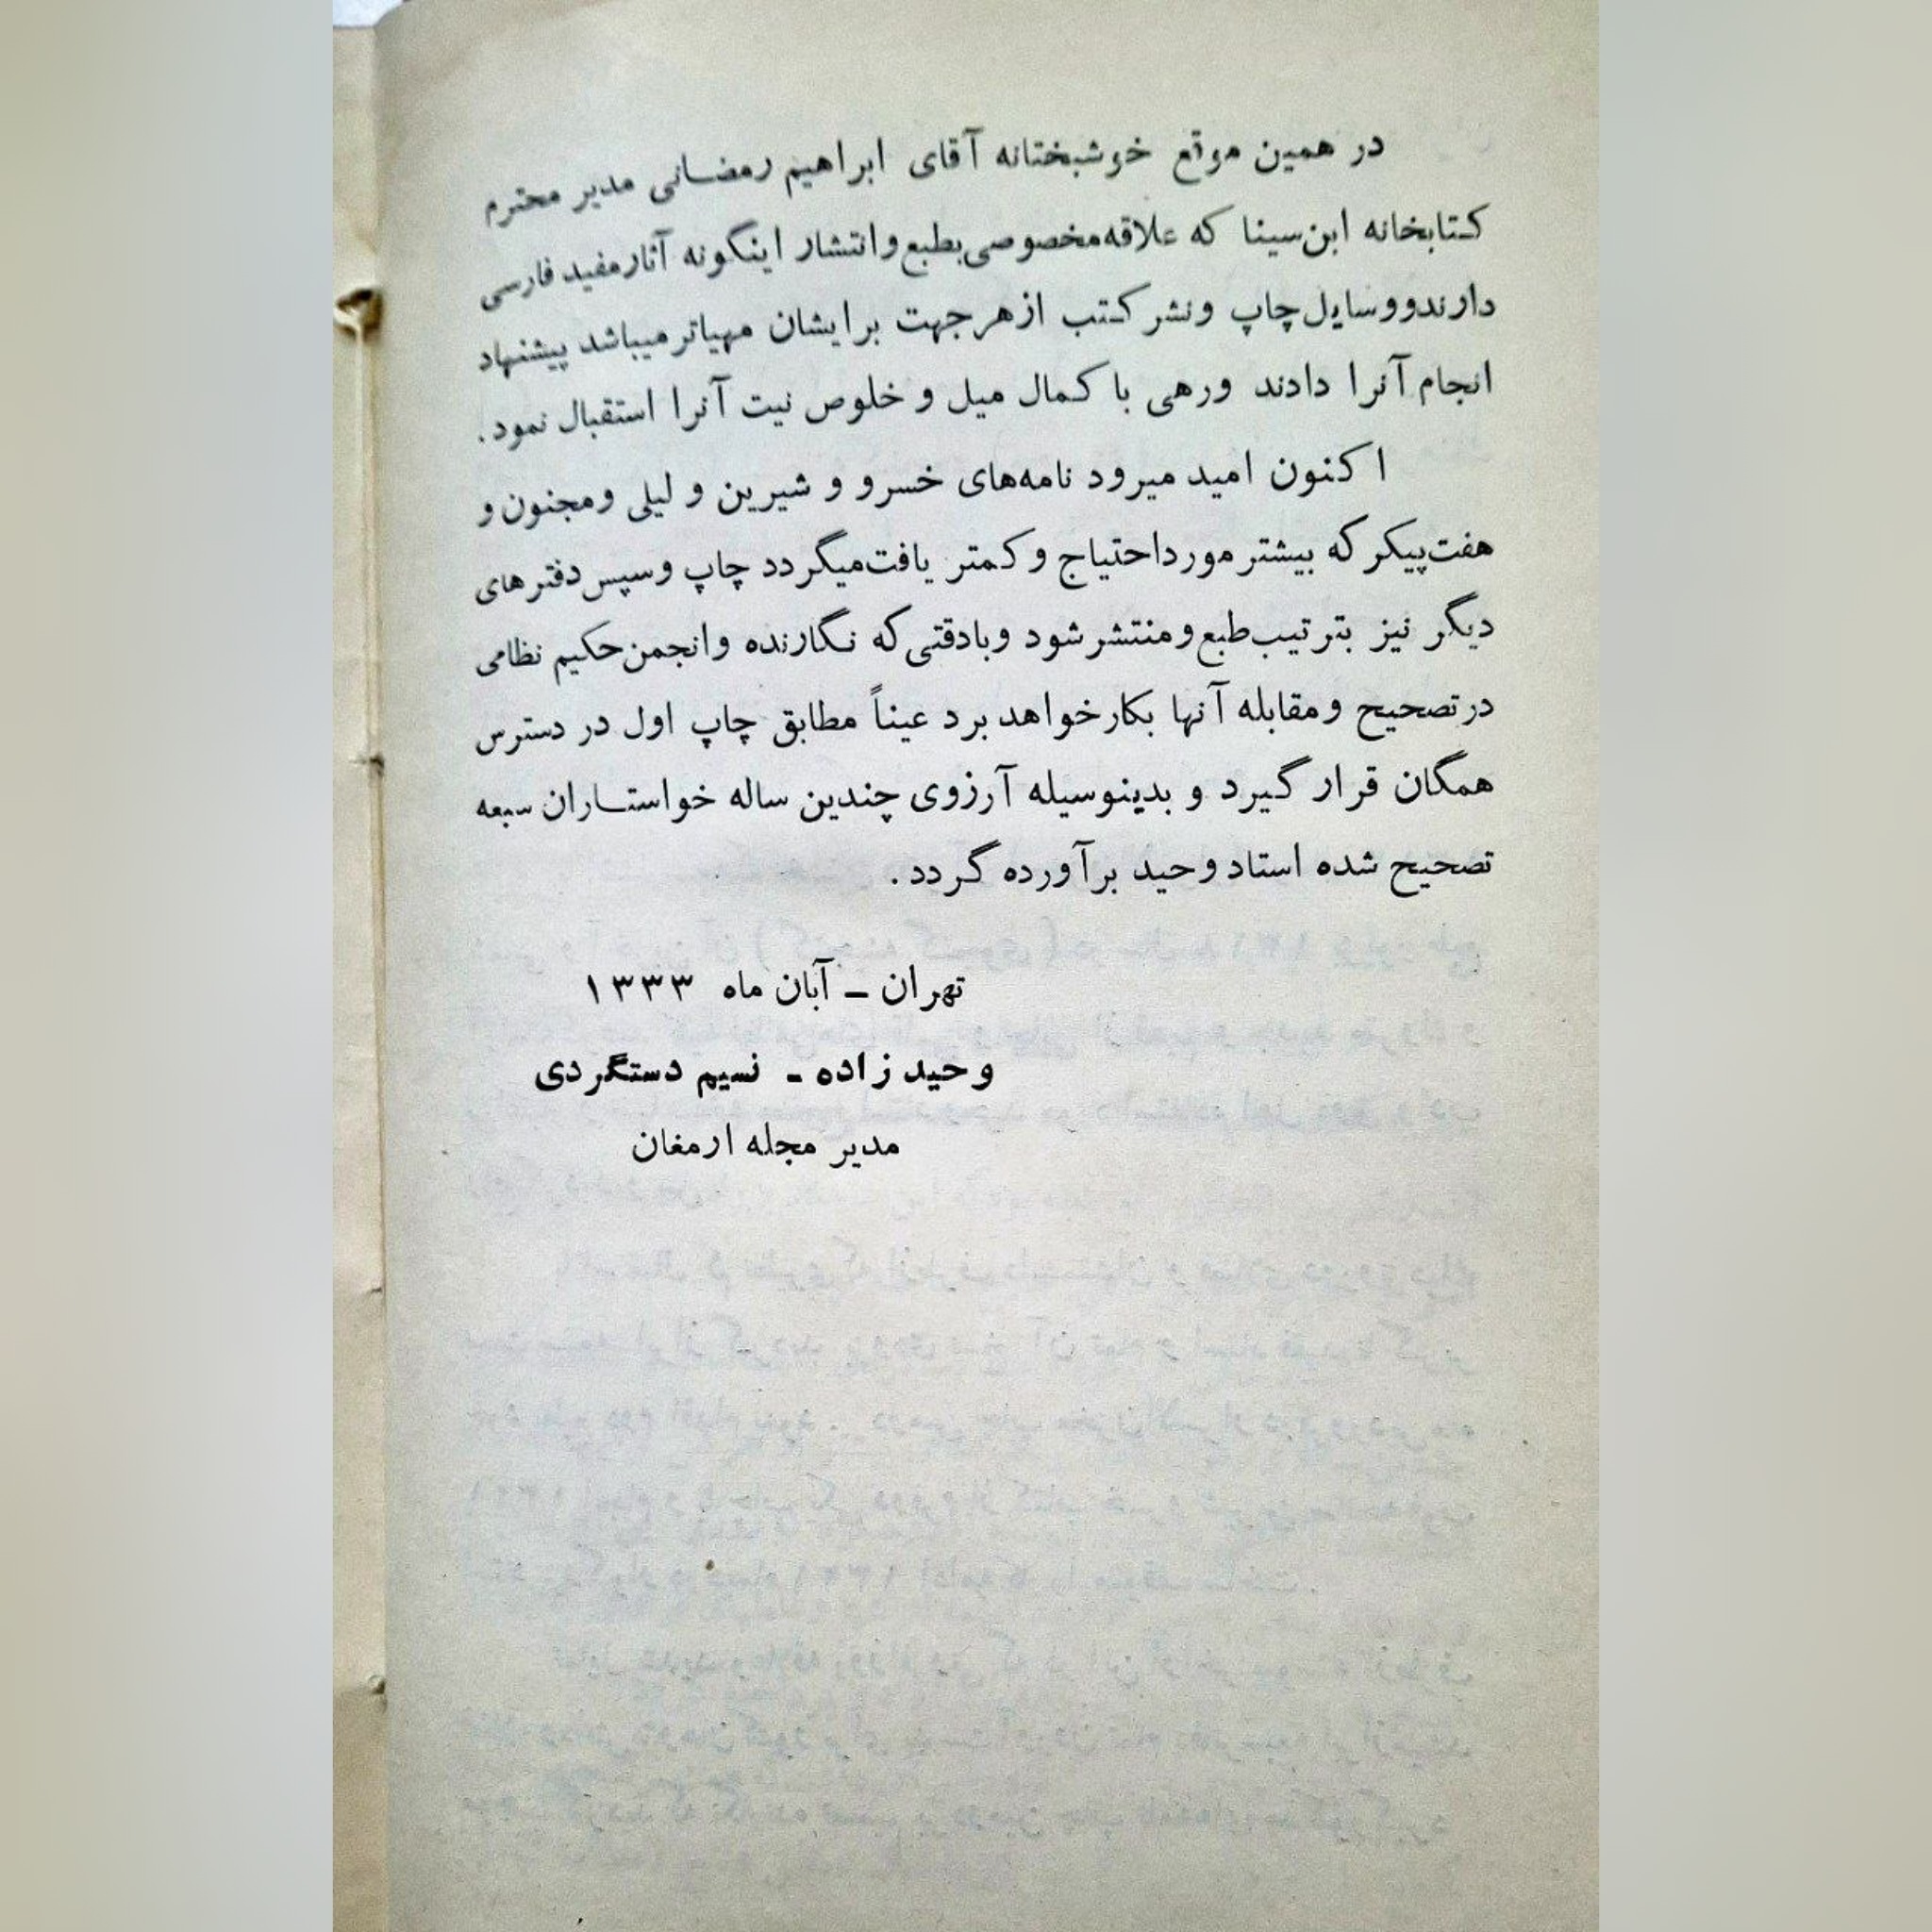 در همین موقع خوشبختانه آقای ابراهیم رمضانی مدیر محترم
کتابخانه ابن‌سینا که علاقه‌مخصوصی بطبع و انتشار اینگونه آثار مفید فارسی
دارند و وسایل چاپ و نشر کتب از هر جهت برایشان مهیاتر میباشد پیشنهاد
انجام آنرا دادند و رهی با کمال میل و خلوص نیت آنرا استقبال نمود.
اکنون امید میرود نامه‌های خسرو و شیرین و لیلی و مجنون و
هفت‌پیکر که بیشتر مورد احتیاج و کمتر یافت‌میگردد چاپ و سپس دفترهای
دیگر نیز بترتیب طبع و منتشر شود و بادقتی که نگارنده و انجمن حکیم نظامی
در تصحیح و مقابله آنها بکار خواهد برد عیناً مطابق چاپ اول در دسترس
همگان قرار گیرد و بدینوسیله آرزوی چندین ساله خواستاران سبعه
تصحیح شده استاد وحید برآورده گردد.
تهران ـ آبان ماه ۱۳۳۳
وحید زاده ـ نسیم دستگردی
مدیر مجله ارمغان